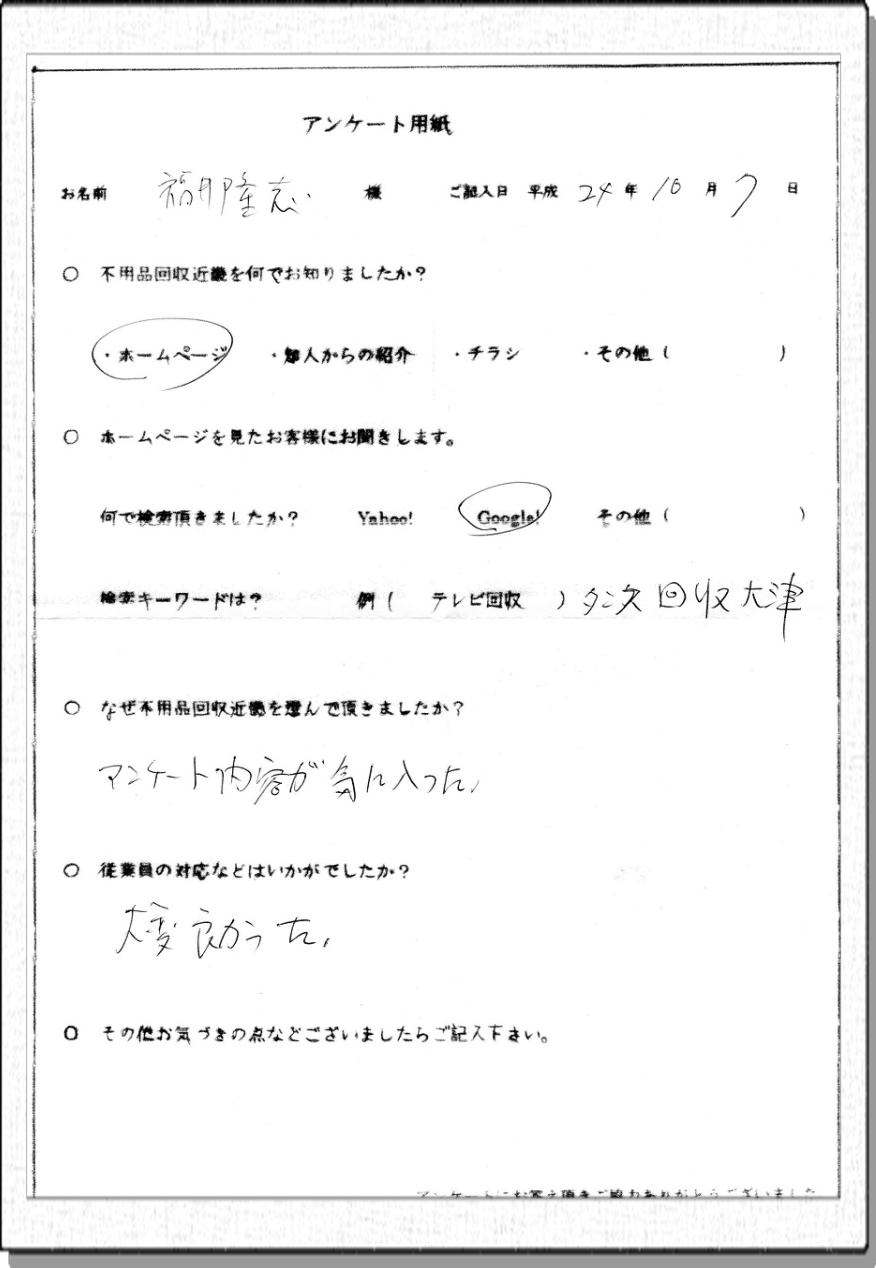 アンケート用紙
お名前 福井隆志 様 ご記入日 平成 24 年 10 月 7 日
○ 不用品回収近畿を何でお知りましたか?
・ホームページ ・知人からの紹介 ・チラシ ・その他 ( )
○ ホームページを見たお客様にお聞きします。
何で検索頂きましたか? Yahoo! Google! その他 ( )
検索キーワードは? 例 ( テレビ回収 ) タンス 回収 大津
○ なぜ不用品回収近畿を選んで頂きましたか?
アンケート内容が気に入った,
○ 従業員の対応などはいかがでしたか?
大変良かった,
○ その他お気づきの点などございましたらご記入下さい。
アンケートにお答え頂きご協力ありがとうございました